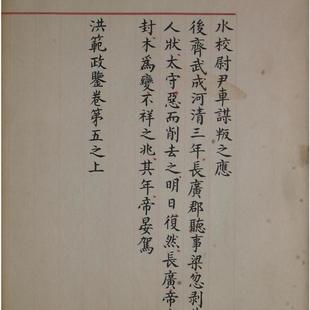 水校尉尹車謀叛之應
後齊武成河清三年長廣郡聽事梁忽剥
人狀太守惡而削去之明日復然長廣帝
封木為變不祥之兆其年帝晏駕
洪範政鑒卷第五之上